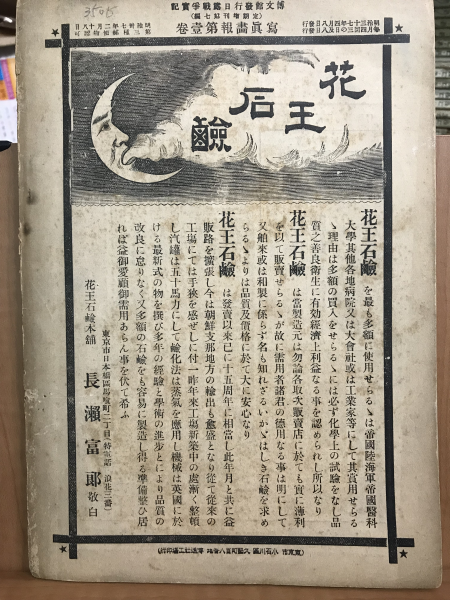 博文館發行日露戰爭實記
定期增刊第七編
寫眞畫報第壹卷
明治三十七年四月八日發行
每月四回三の日及八日發行
花王石鹼
花王石鹼を最も多額に使用せらるゝは帝國陸海軍帝國醫科
大學其他各地病院又は大會社或は工業家等にして其賞用せらる
ゝ理由は多額の買入をせらるゝには必ず化學上の試驗をなし品
質之善良衛生に有効經濟上利益なる事を認められし所以なり
花王石鹼は當製造元は勿論各取次販賣店に於ても實に薄利
を以て販賣せらるゝが故に需用者諸君の德用なる事は明にして
又舶來或は和製に係らず名も知れざるいかゞはしき石鹼を求め
らるゝよりは品質及價格に於て大に安心なり
花王石鹼は發賣以來已に十五周年に相當し此年月と共に益
販路を擴張し今は朝鮮支那地方の輸出も愈盛となり從て從來の
工場にては手狹を感ぜしに付一昨年來工場新築中の處漸く整頓
し汽罐は五十馬力にして鹼化法は蒸氣を應用し機械は英國に於
ける最新式の物を撰び多年の經驗と學術の進步とにより品質の
改良に怠りなく又多額の石鹼をも容易に製造し得る準備整ひ居
れば益御愛顧御需用あらん事を伏て希ふ
東京市日本橋區馬喰町二丁目（特電話 浪花三番）
花王石鹼本舖 長瀨富郎 敬白